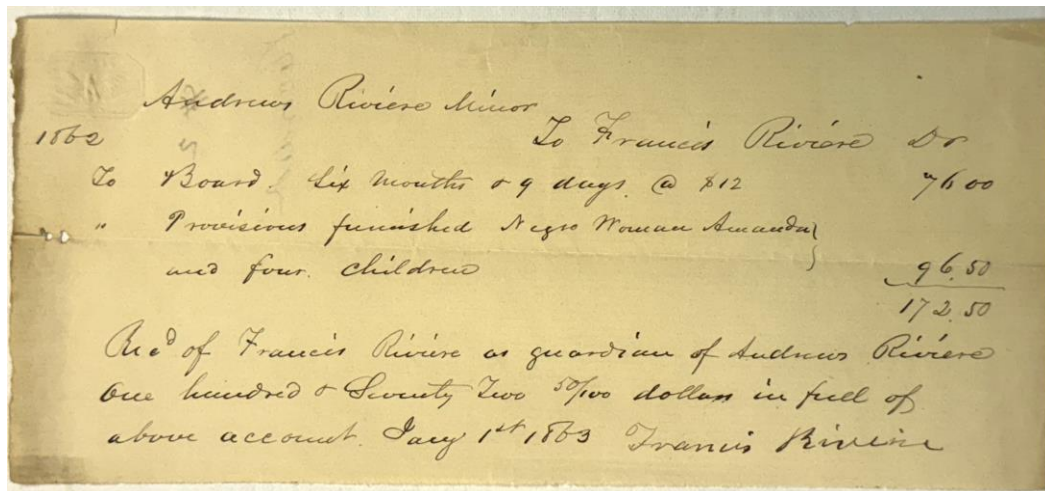 Andrews Riviére Minor
1862 To Francis Riviére Dr
To Board. Six Months & 9 days @ $12 76 00
" Provisions furnished Negro Woman Amanda
and four children 96.50
172.50
Recd of Francis Riviére as guardian of Andrews Riviére
One hundred & Seventy Two 50/100 dollars in full of
above account. Jany 1st 1863 Francis Riviére